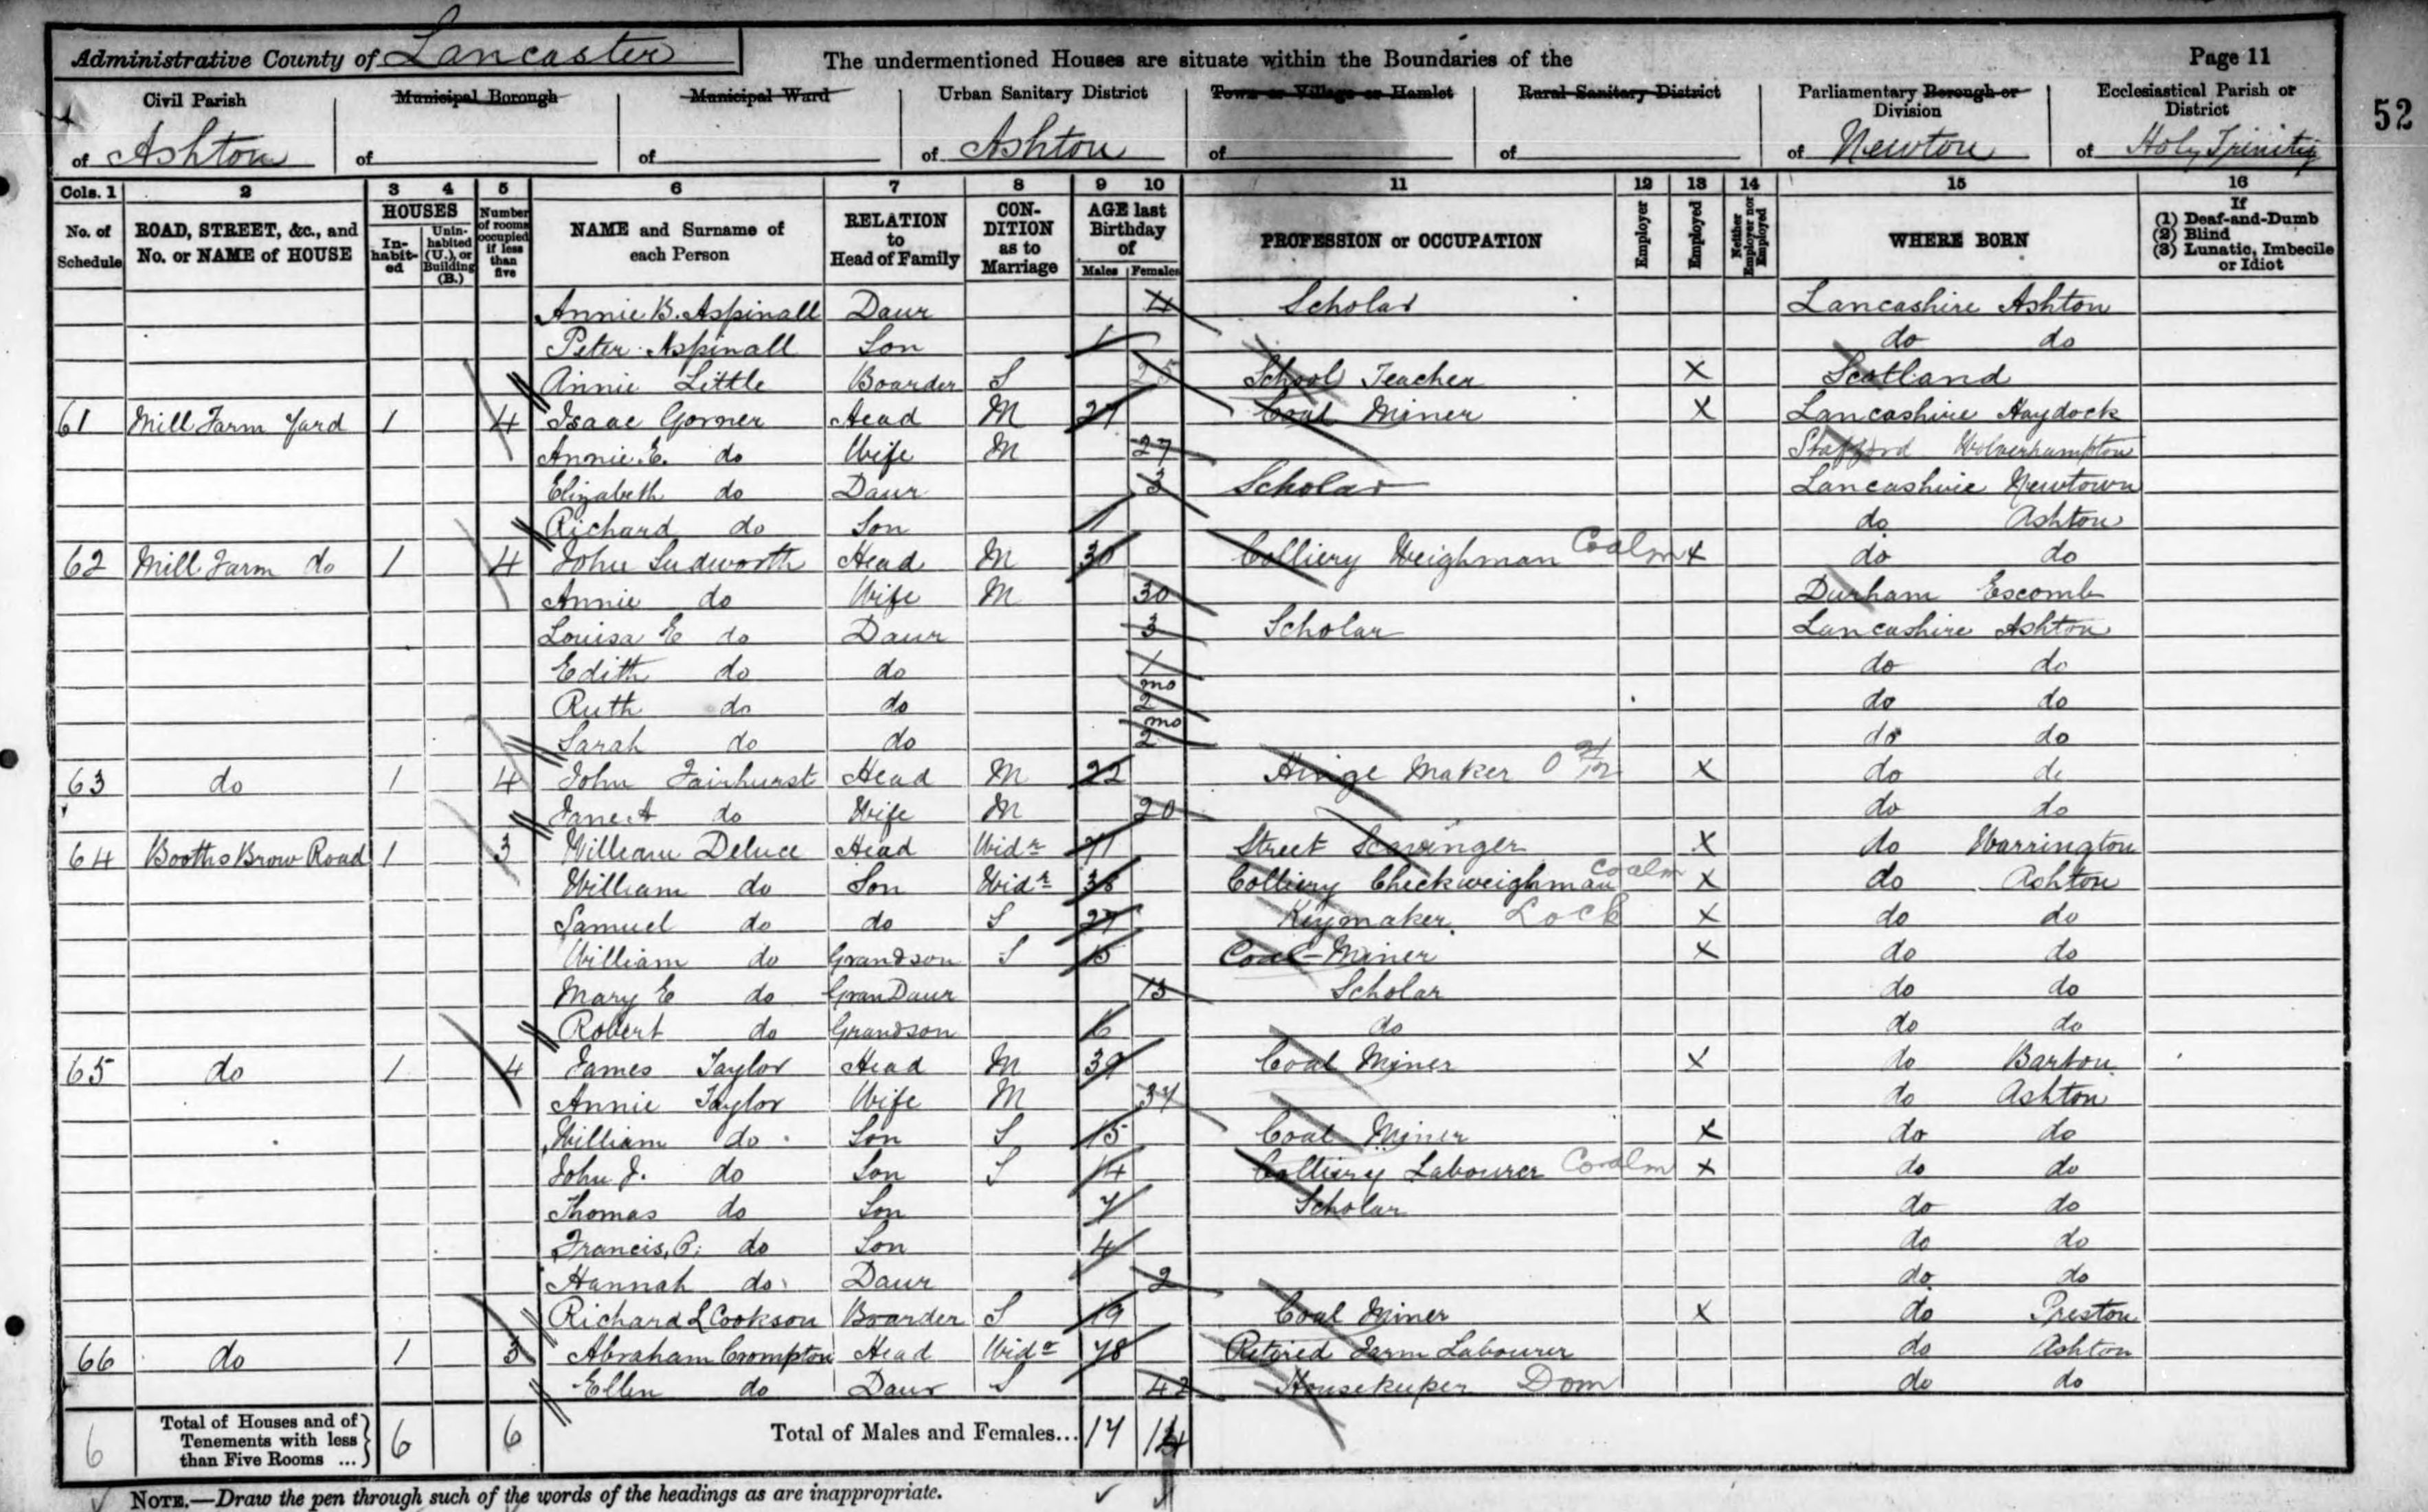 Administrative County of Lancaster The undermentioned Houses are situate within the Boundaries of the Page 11
Civil Parish Municipal Borough Municipal Ward Urban Sanitary District Town or Village or Hamlet Rural Sanitary District Parliamentary Borough or Division Ecclesiastical Parish or District
of Ashton of of of Ashton of of of Newton of Holy Trinity
52
Cols. 1 2 3 4 5 6 7 8 9 10 11 12 13 14 15 16
No. of Schedule ROAD, STREET, &c., and No. or NAME of HOUSE HOUSES In-habit-ed Unin-habited (U.), or Building (B.) Number of rooms occupied if less than five NAME and Surname of each Person RELATION to Head of Family CON-DITION as to Marriage AGE last Birthday of Males Females PROFESSION or OCCUPATION Employer Employed Neither Employer nor Employed WHERE BORN If (1) Deaf-and-Dumb (2) Blind (3) Lunatic, Imbecile or Idiot
Annie B. Aspinall Daur 4 Scholar Lancashire Ashton
Peter Aspinall Son 1 do do
Annie Little Boarder S 25 School Teacher X Scotland
61 Mill Farm Yard 1 4 Isaac Gorner Head M 27 Coal Miner X Lancashire Haydock
Annie E. do Wife M 27 Stafford Wolverhampton
Elizabeth do Daur 3 Scholar Lancashire Newtown
Richard do Son 1 do Ashton
62 Mill Farm do 1 4 John Ludworth Head M 30 Colliery Weighman Coalm X do do
Annie do Wife M 30 Durham Escomb
Louisa E do Daur 3 Scholar Lancashire Ashton
Edith do do 1 do do
Ruth do do mo 2 do do
Sarah do do mo 2 do do
63 do 1 4 John Fairhurst Head M 22 Hinge Maker X do do
Jane A do Wife M 20 do do
64 Booths Brow Road 1 3 William Deluce Head Widr 71 Street Scavinger X do Warrington
William do Son Widr 38 Colliery Checkweighman Coalm X do Ashton
Samuel do do S 27 Keymaker Lock X do do
William do Grandson S 15 Coal-Miner X do do
Mary E do GranDaur 13 Scholar do do
Robert do Grandson 6 do do do
65 do 1 4 James Taylor Head M 39 Coal Miner X do Barton
Annie Taylor Wife M 34 do Ashton
William do Son S 15 Coal Miner X do do
John J. do Son S 14 Colliery Labourer Coalm X do do
Thomas do Son 7 Scholar do do
Francis, C. do Son 4 do do
Hannah do Daur 2 do do
Richard L Cookson Boarder S 19 Coal Miner X do Preston
66 do 1 3 Abraham Crompton Head Widr 78 Retired Farm Labourer do Ashton
Ellen do Daur S 42 Housekeeper Dom do do
6 Total of Houses and of Tenements with less than Five Rooms ... 6 6 Total of Males and Females... 17 14
NOTE.—Draw the pen through such of the words of the headings as are inappropriate.